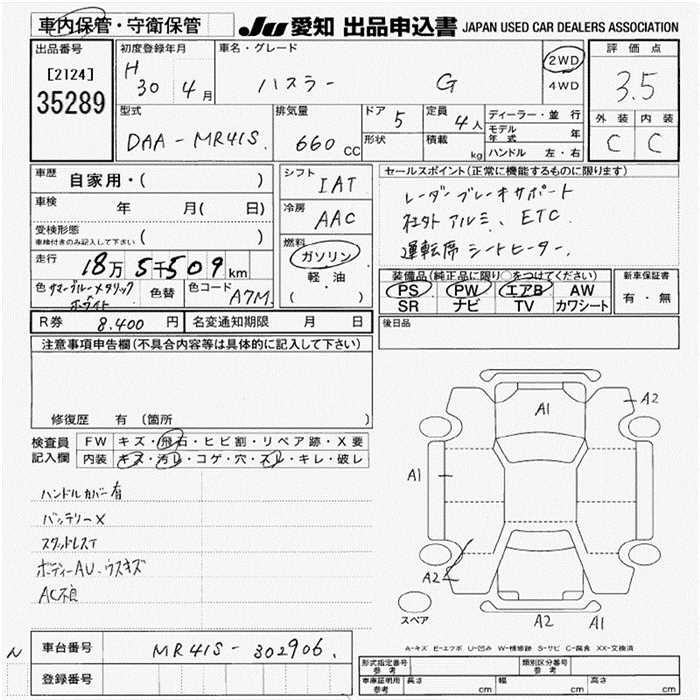 車内保管・守衛保管
JU 愛知 出品申込書 JAPAN USED CAR DEALERS ASSOCIATION
出品番号
[2124]
35289
初度登録年月
H 30 4月
車名・グレード
ハスラー G
2WD
4WD
評価点
3.5
外装 内装
C C
型式
DAA-MR41S
排気量
660 cc
ドア 5
形状
定員 4人
積載 kg
ディーラー・並 行
モデル年式 年
ハンドル 左・右
車歴 自家用・( )
車検 年 月( 日)
受検形態
車検付きのみ記入して下さい ( )
走行 18万5千509km
色 サマーブルーメタリック
ホワイト
色替
色コード A7M
シフト IAT
冷房 AAC
燃料
ガソリン
軽・油
( )
セールスポイント(正常に機能するものに限ります)
レーダーブレーキサポート
社外アルミ、ETC
運転席シートヒーター
装備品(純正品に限り○をつけてください)
PS PW エアB AW
SR ナビ TV カワシート
新車保証書
有・無
R券 8,400円
名変通知期限 月 日
後日品
注意事項申告欄(不具合内容等は具体的に記入して下さい)
修復歴 有 (箇所 )
検査員記入欄
FW キズ・飛石・ヒビ割・リペア跡・X要
内装 キズ・汚レ・コゲ・穴・スレ・キレ・破レ
ハンドルカバー有
バッテリーX
スタッドレスT
ボディーAU・ウスキズ
AC不良
A1
A2
A1
A2
A2 A1
スペア
A-キズ E-エクボ U-凹み W-補修跡 S-サビ C-腐食 XX-交換済
N
車台番号 MR41S-302906
登録番号
形式指定番号 参考
類別区分番号 参考
車庫証明用 参考
長さ cm 幅 cm 高さ cm